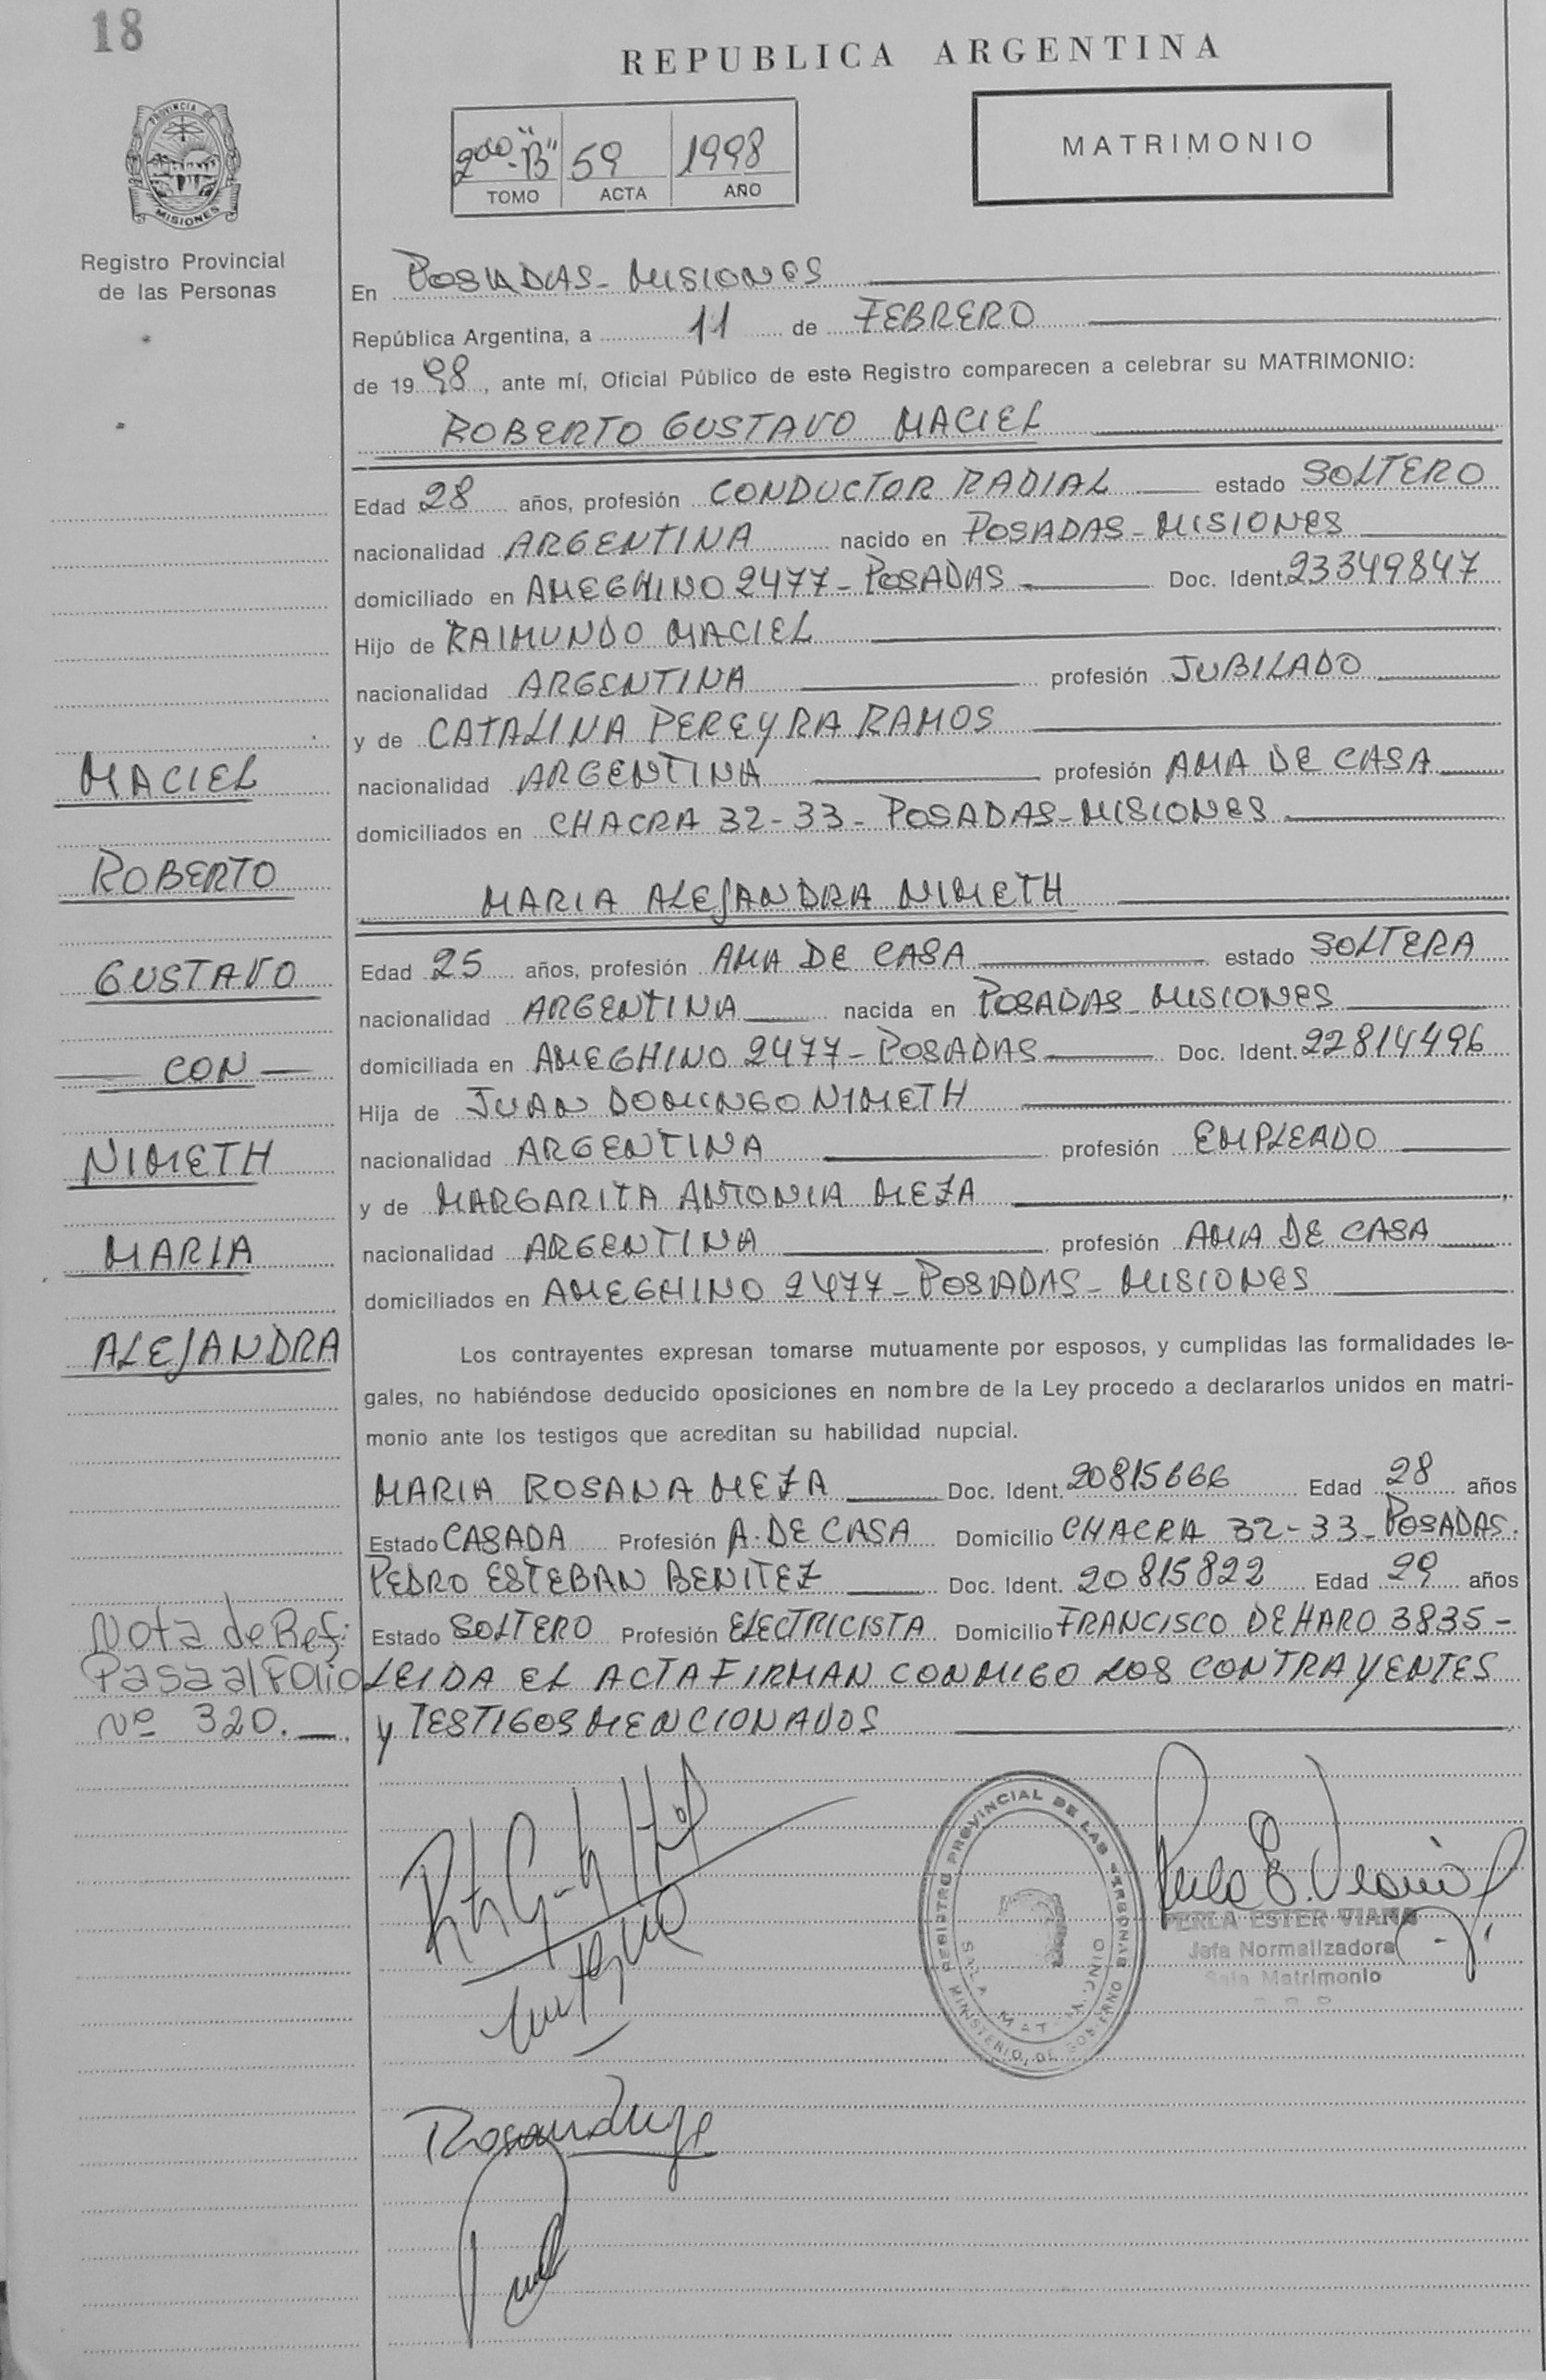 18
REPUBLICA ARGENTINA
PROVINCIA DE
MISIONES
Registro Provincial
de las Personas
2do "B" 59 1998
TOMO ACTA AÑO
MATRIMONIO
En POSADAS - MISIONES
República Argentina, a 11 de FEBRERO
de 1998, ante mí, Oficial Público de este Registro comparecen a celebrar su MATRIMONIO:
ROBERTO GUSTAVO MACIEL
Edad 28 años, profesión CONDUCTOR RADIAL estado SOLTERO
nacionalidad ARGENTINA nacido en POSADAS - MISIONES
domiciliado en AMEGHINO 2477 - POSADAS Doc. Ident. 23349847
Hijo de RAIMUNDO MACIEL
nacionalidad ARGENTINA profesión JUBILADO
y de CATALINA PEREYRA RAMOS
nacionalidad ARGENTINA profesión AMA DE CASA
domiciliados en CHACRA 32-33 - POSADAS - MISIONES
MARIA ALEJANDRA NIMETH
Edad 25 años, profesión AMA DE CASA estado SOLTERA
nacionalidad ARGENTINA nacida en POSADAS - MISIONES
domiciliada en AMEGHINO 2477 - POSADAS Doc. Ident. 22814496
Hija de JUAN DOMINGO NIMETH
nacionalidad ARGENTINA profesión EMPLEADO
y de MARGARITA ANTONIA MEZA
nacionalidad ARGENTINA profesión AMA DE CASA
domiciliados en AMEGHINO 2477 - POSADAS - MISIONES
MACIEL
ROBERTO
GUSTAVO
CON
NIMETH
MARIA
ALEJANDRA
Los contrayentes expresan tomarse mutuamente por esposos, y cumplidas las formalidades le-
gales, no habiéndose deducido oposiciones en nombre de la Ley procedo a declararlos unidos en matri-
monio ante los testigos que acreditan su habilidad nupcial.
MARIA ROSANA MEZA Doc. Ident. 20815666 Edad 28 años
Estado CASADA Profesión A. DE CASA Domicilio CHACRA 32-33 - POSADAS.
PEDRO ESTEBAN BENITEZ Doc. Ident. 20815822 Edad 29 años
Estado SOLTERO Profesión ELECTRICISTA Domicilio FRANCISCO DE HARO 3835 -
LEIDA EL ACTA FIRMAN CONMIGO LOS CONTRAYENTES
y TESTIGOS MENCIONADOS
Nota de Ref:
Pasa al Folio
Nº 320.
REGISTRO PROVINCIAL DE LAS PERSONAS
SALA MATRIMONIO
MINISTERIO DE GOBIERNO
PERLA ESTER VIANA
Jefa Normalizadora
Sala Matrimonio